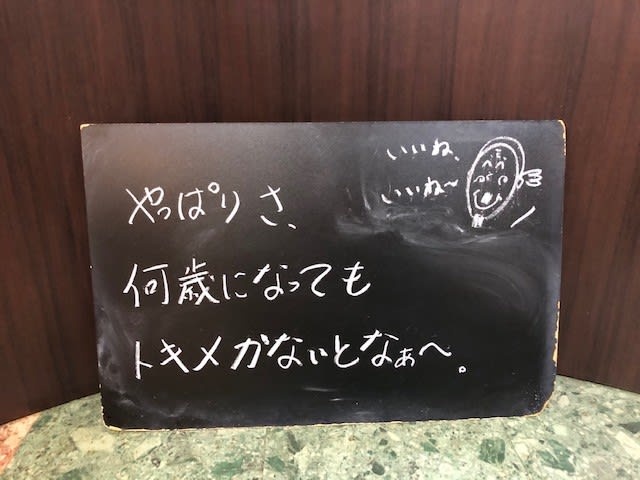 やっぱりさ、
何歳になっても
トキメかないとなぁへ。
いいね、
いいね〜